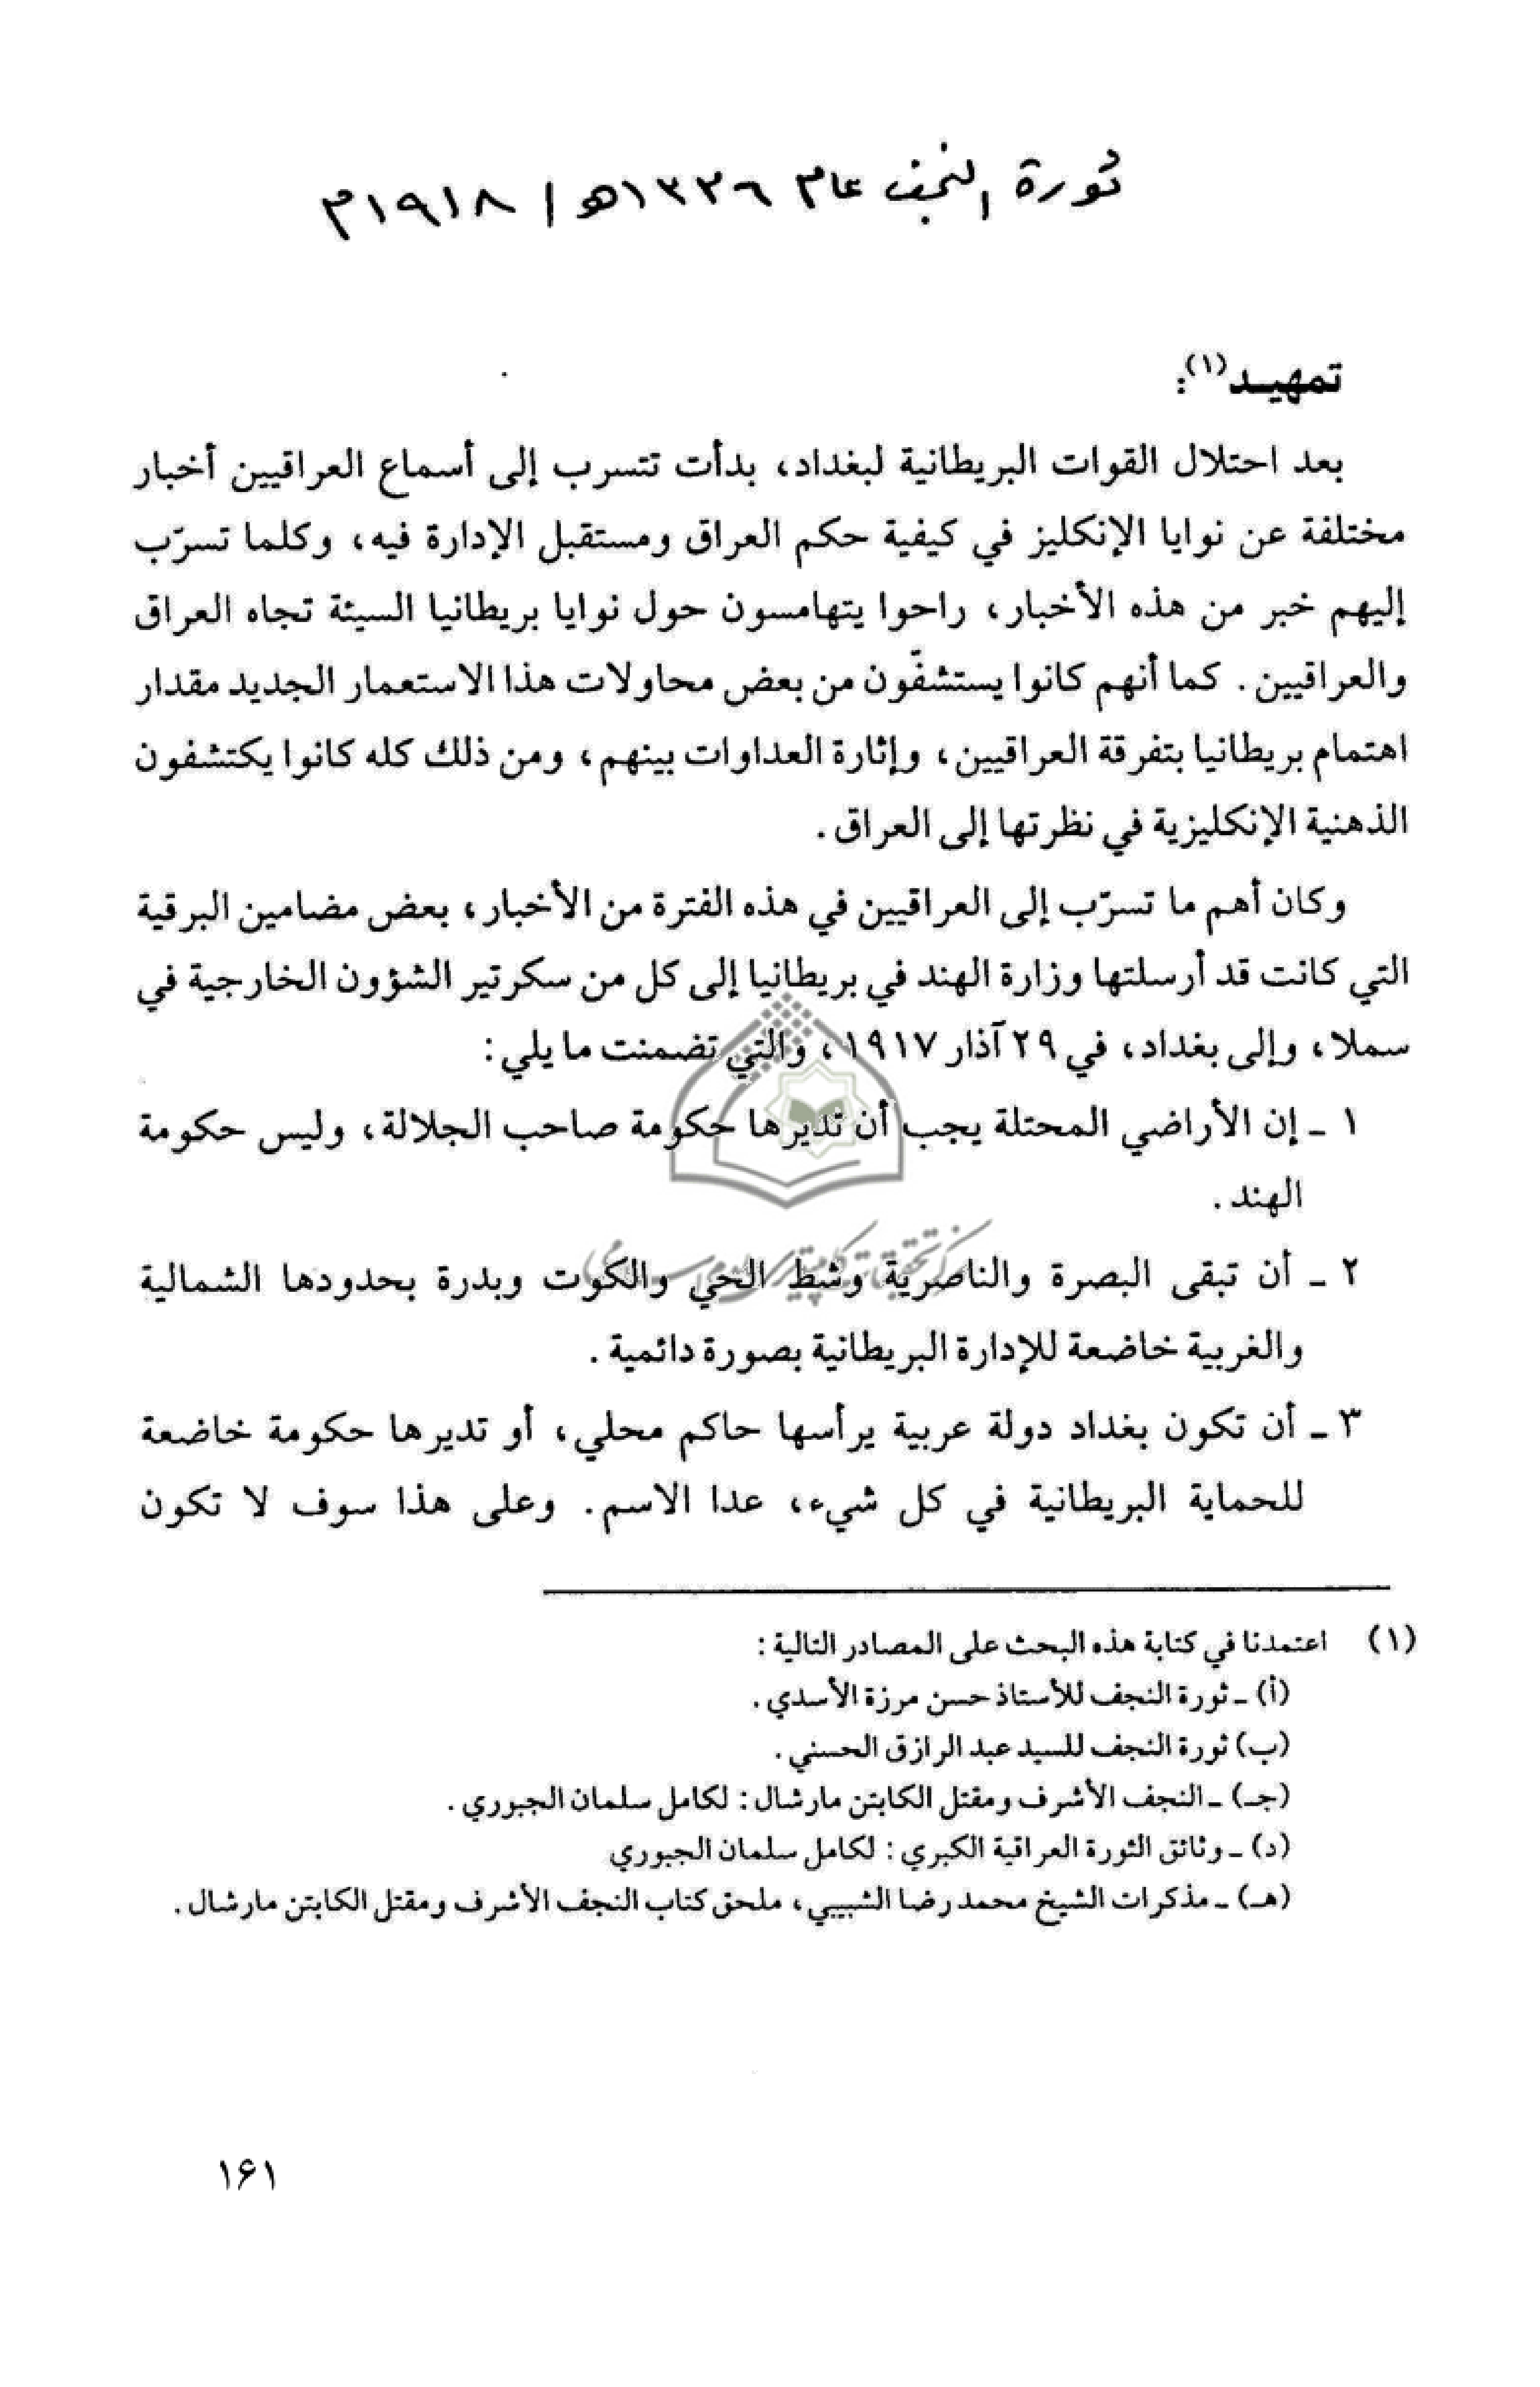 ثورة النجف عام ١٣٣٦هـ / ١٩١٨م
تمهيـد(١):
بعد احتلال القوات البريطانية لبغداد، بدأت تتسرب إلى أسماع العراقيين أخبار
مختلفة عن نوايا الإنكليز في كيفية حكم العراق ومستقبل الإدارة فيه، وكلما تسرّب
إليهم خبر من هذه الأخبار، راحوا يتهامسون حول نوايا بريطانيا السيئة تجاه العراق
والعراقيين. كما أنهم كانوا يستشفّون من بعض محاولات هذا الاستعمار الجديد مقدار
اهتمام بريطانيا بتفرقة العراقيين، وإثارة العداوات بينهم، ومن ذلك كله كانوا يكتشفون
الذهنية الإنكليزية في نظرتها إلى العراق.
وكان أهم ما تسرّب إلى العراقيين في هذه الفترة من الأخبار، بعض مضامين البرقية
التي كانت قد أرسلتها وزارة الهند في بريطانيا إلى كل من سكرتير الشؤون الخارجية في
سملا، وإلى بغداد، في ٢٩ آذار ١٩١٧، والتي تضمنت ما يلي:
١ ـ إن الأراضي المحتلة يجب أن تديرها حكومة صاحب الجلالة، وليس حكومة
الهند.
٢ ـ أن تبقى البصرة والناصرية وشط الحي والكوت وبدرة بحدودها الشمالية
والغربية خاضعة للإدارة البريطانية بصورة دائمية.
٣ ـ أن تكون بغداد دولة عربية يرأسها حاكم محلي، أو تديرها حكومة خاضعة
للحماية البريطانية في كل شيء، عدا الاسم. وعلى هذا سوف لا تكون
(١) اعتمدنا في كتابة هذه البحث على المصادر التالية:
(أ) ـ ثورة النجف للأستاذ حسن مرزة الأسدي.
(ب) ثورة النجف للسيد عبد الرازق الحسني.
(جـ) ـ النجف الأشرف ومقتل الكابتن مارشال: لكامل سلمان الجبوري.
(د) ـ وثائق الثورة العراقية الكبري: لكامل سلمان الجبوري
(هـ) ـ مذكرات الشيخ محمد رضا الشبيبي، ملحق كتاب النجف الأشرف ومقتل الكابتن مارشال.
۱۶۱